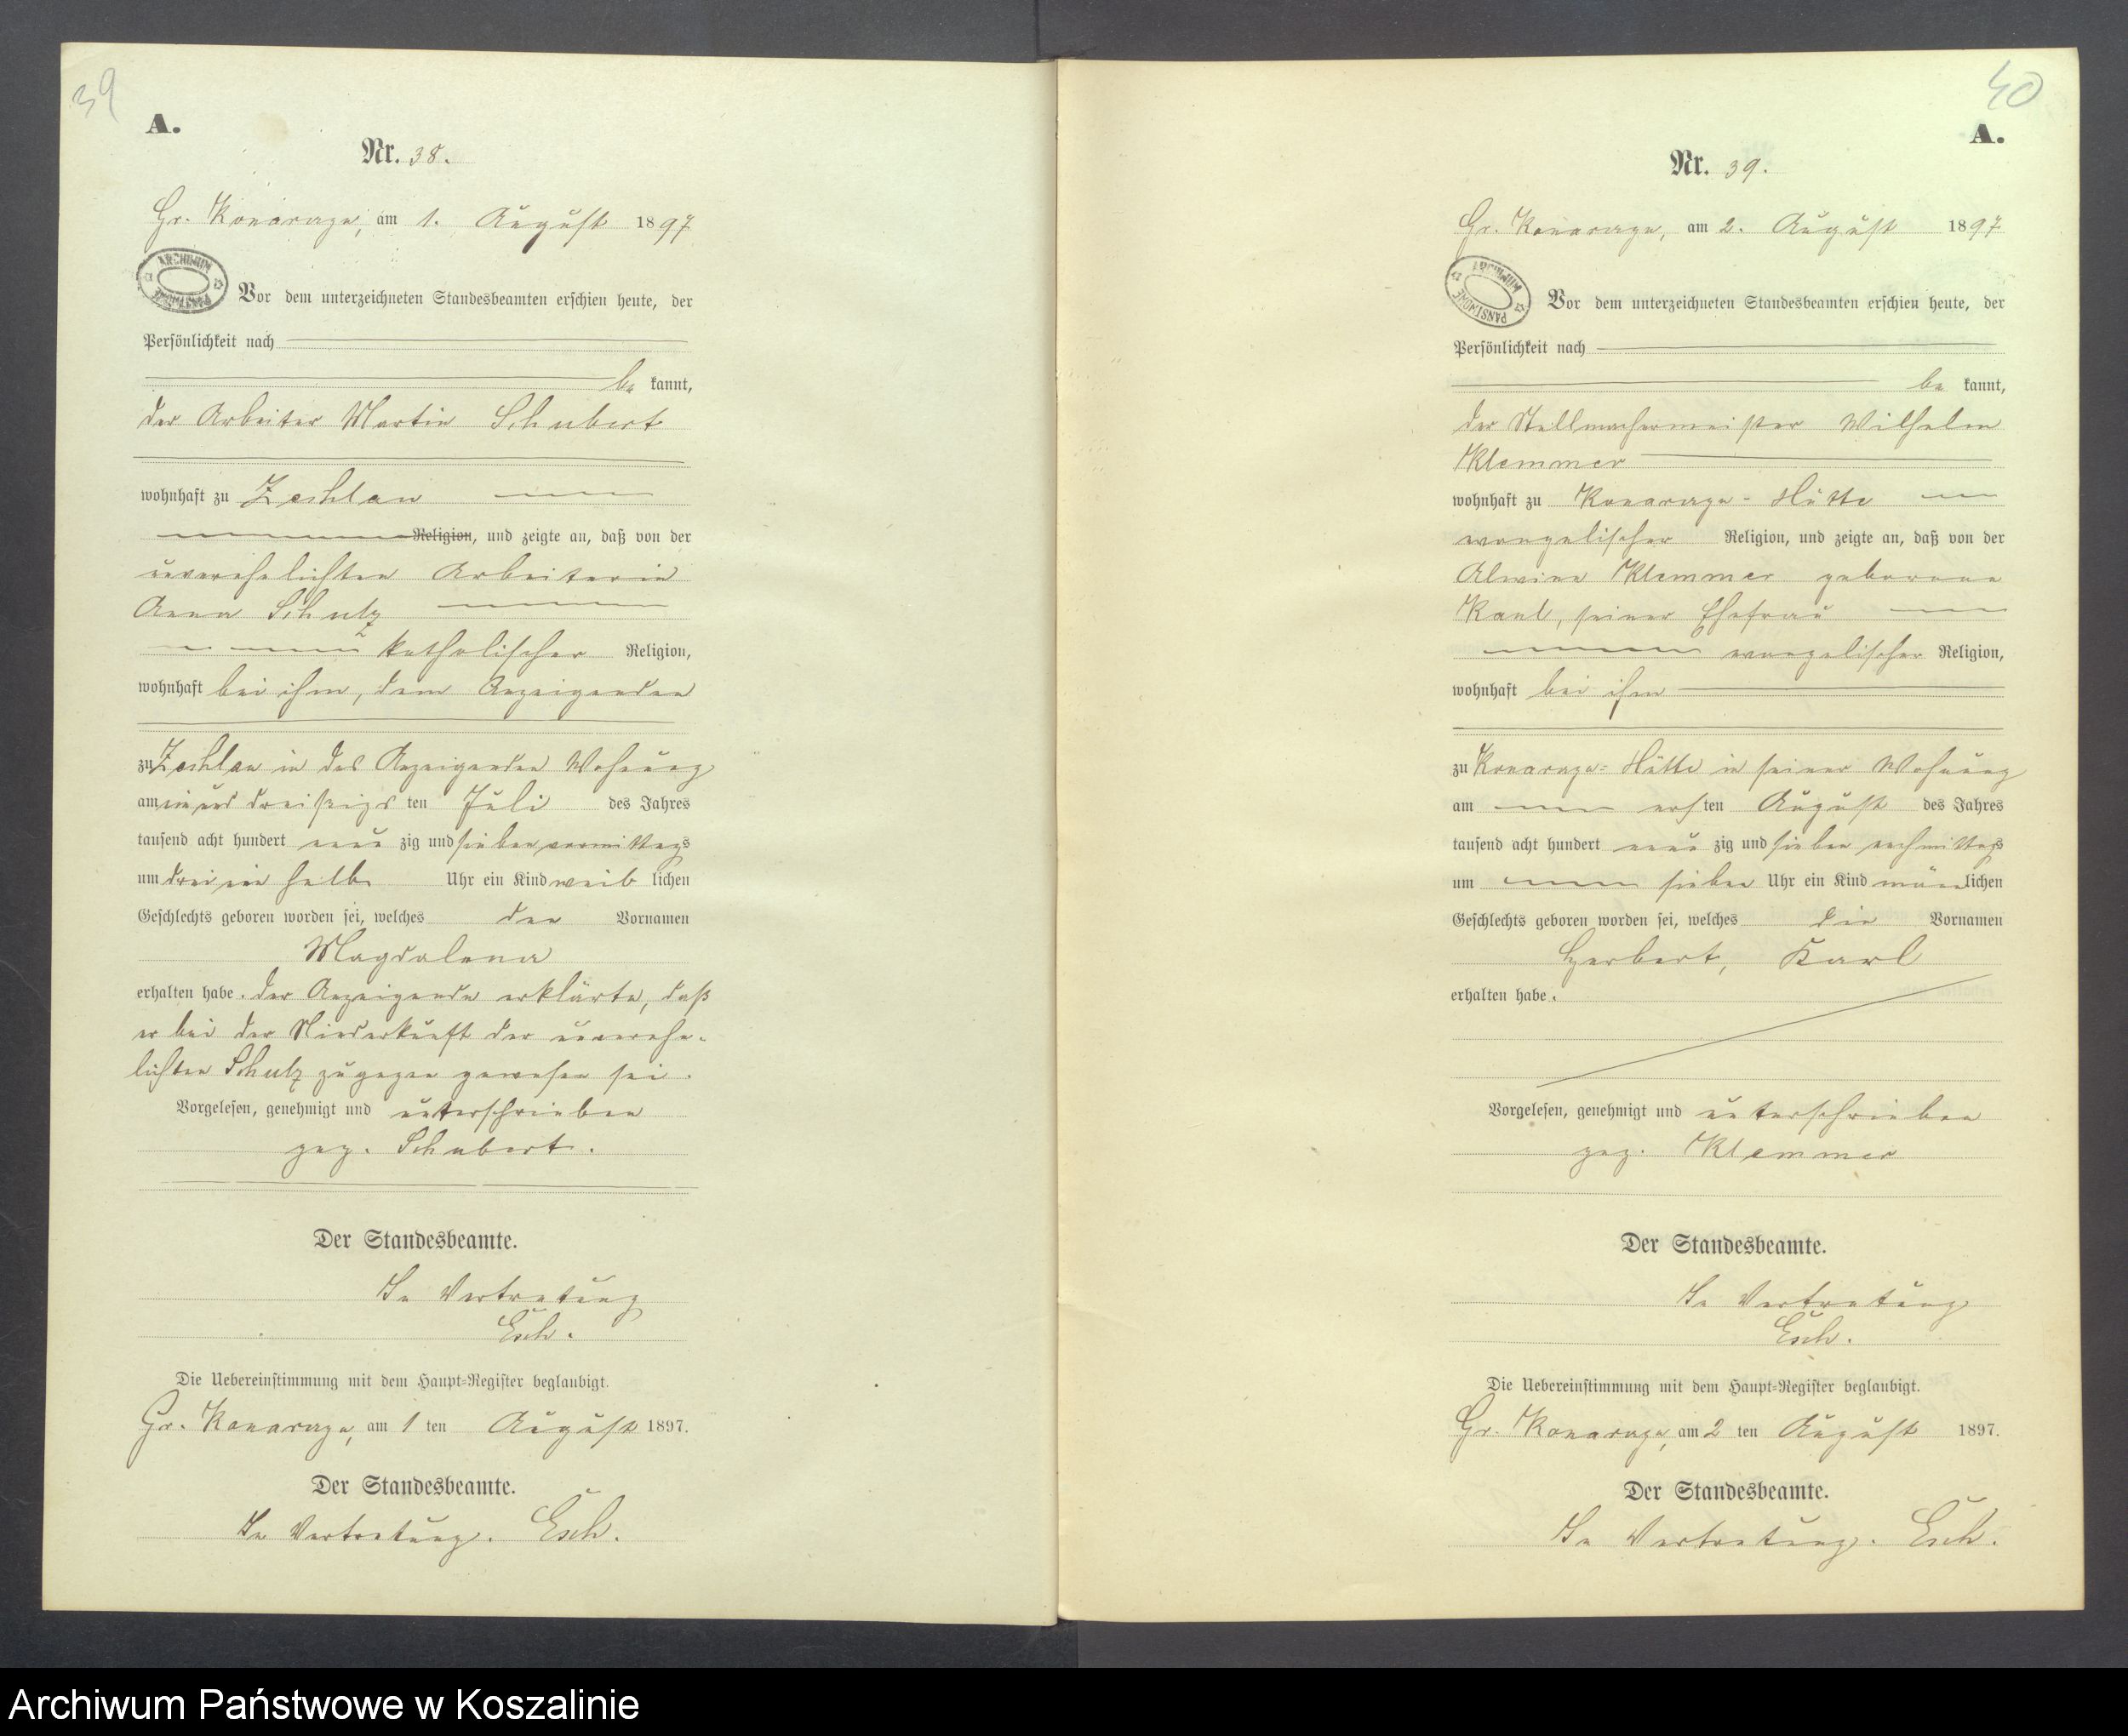 39
A.
Nr. 38.
Gr. Konarzyn, am 1. August 1897
ARCHIWUM PAŃSTWOWE
Vor dem unterzeichneten Standesbeamten erschien heute, der
Persönlichkeit nach
be kannt,
der Arbeiter Martin Schubert
wohnhaft zu Zechlau
Religion, und zeigte an, daß von der
unverehelichten Arbeiterin
Anna Schulz
katholischer Religion,
wohnhaft bei ihm, dem Anzeigenden
zu Zechlau in des Anzeigenden Wohnung
am einund dreißigs ten Juli des Jahres
tausend acht hundert neun zig und sieben vormittags
um drei ein halb Uhr ein Kind weib lichen
Geschlechts geboren worden sei, welches den Vornamen
Magdalena
erhalten habe. Der Anzeigende erklärte, daß
er bei der Niederkunft der unverehe-
lichten Schulz zugegen gewesen sei.
Vorgelesen, genehmigt und unterschrieben
gez. Schubert.
Der Standesbeamte.
In Vertretung
Esch.
Die Uebereinstimmung mit dem Haupt-Register beglaubigt.
Gr. Konarzyn, am 1 ten August 1897.
Der Standesbeamte.
In Vertretung. Esch.
40
A.
Nr. 39.
Gr. Konarzyn, am 2. August 1897
ARCHIWUM PAŃSTWOWE
Vor dem unterzeichneten Standesbeamten erschien heute, der
Persönlichkeit nach
be kannt,
der Stellmachermeister Wilhelm
Klemmer
wohnhaft zu Konarzyn-Hütte
evangelischer Religion, und zeigte an, daß von der
Alwine Klemmer geborene
seiner Ehefrau
evangelischer Religion,
wohnhaft bei ihm
zu Konarzyn-Hütte in seiner Wohnung
am ersten August des Jahres
tausend acht hundert neun zig und sieben nachmittags
um sieben Uhr ein Kind männlichen
Geschlechts geboren worden sei, welches die Vornamen
Herbert, Karl
erhalten habe.
Vorgelesen, genehmigt und unterschrieben
gez. Klemmer
Der Standesbeamte.
In Vertretung
Esch.
Die Uebereinstimmung mit dem Haupt-Register beglaubigt.
Gr. Konarzyn, am 2 ten August 1897.
Der Standesbeamte.
In Vertretung. Esch.
Archiwum Państwowe w Koszalinie